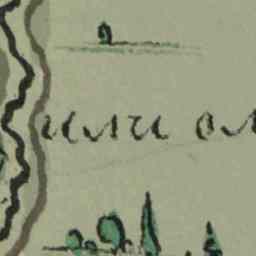 или ол